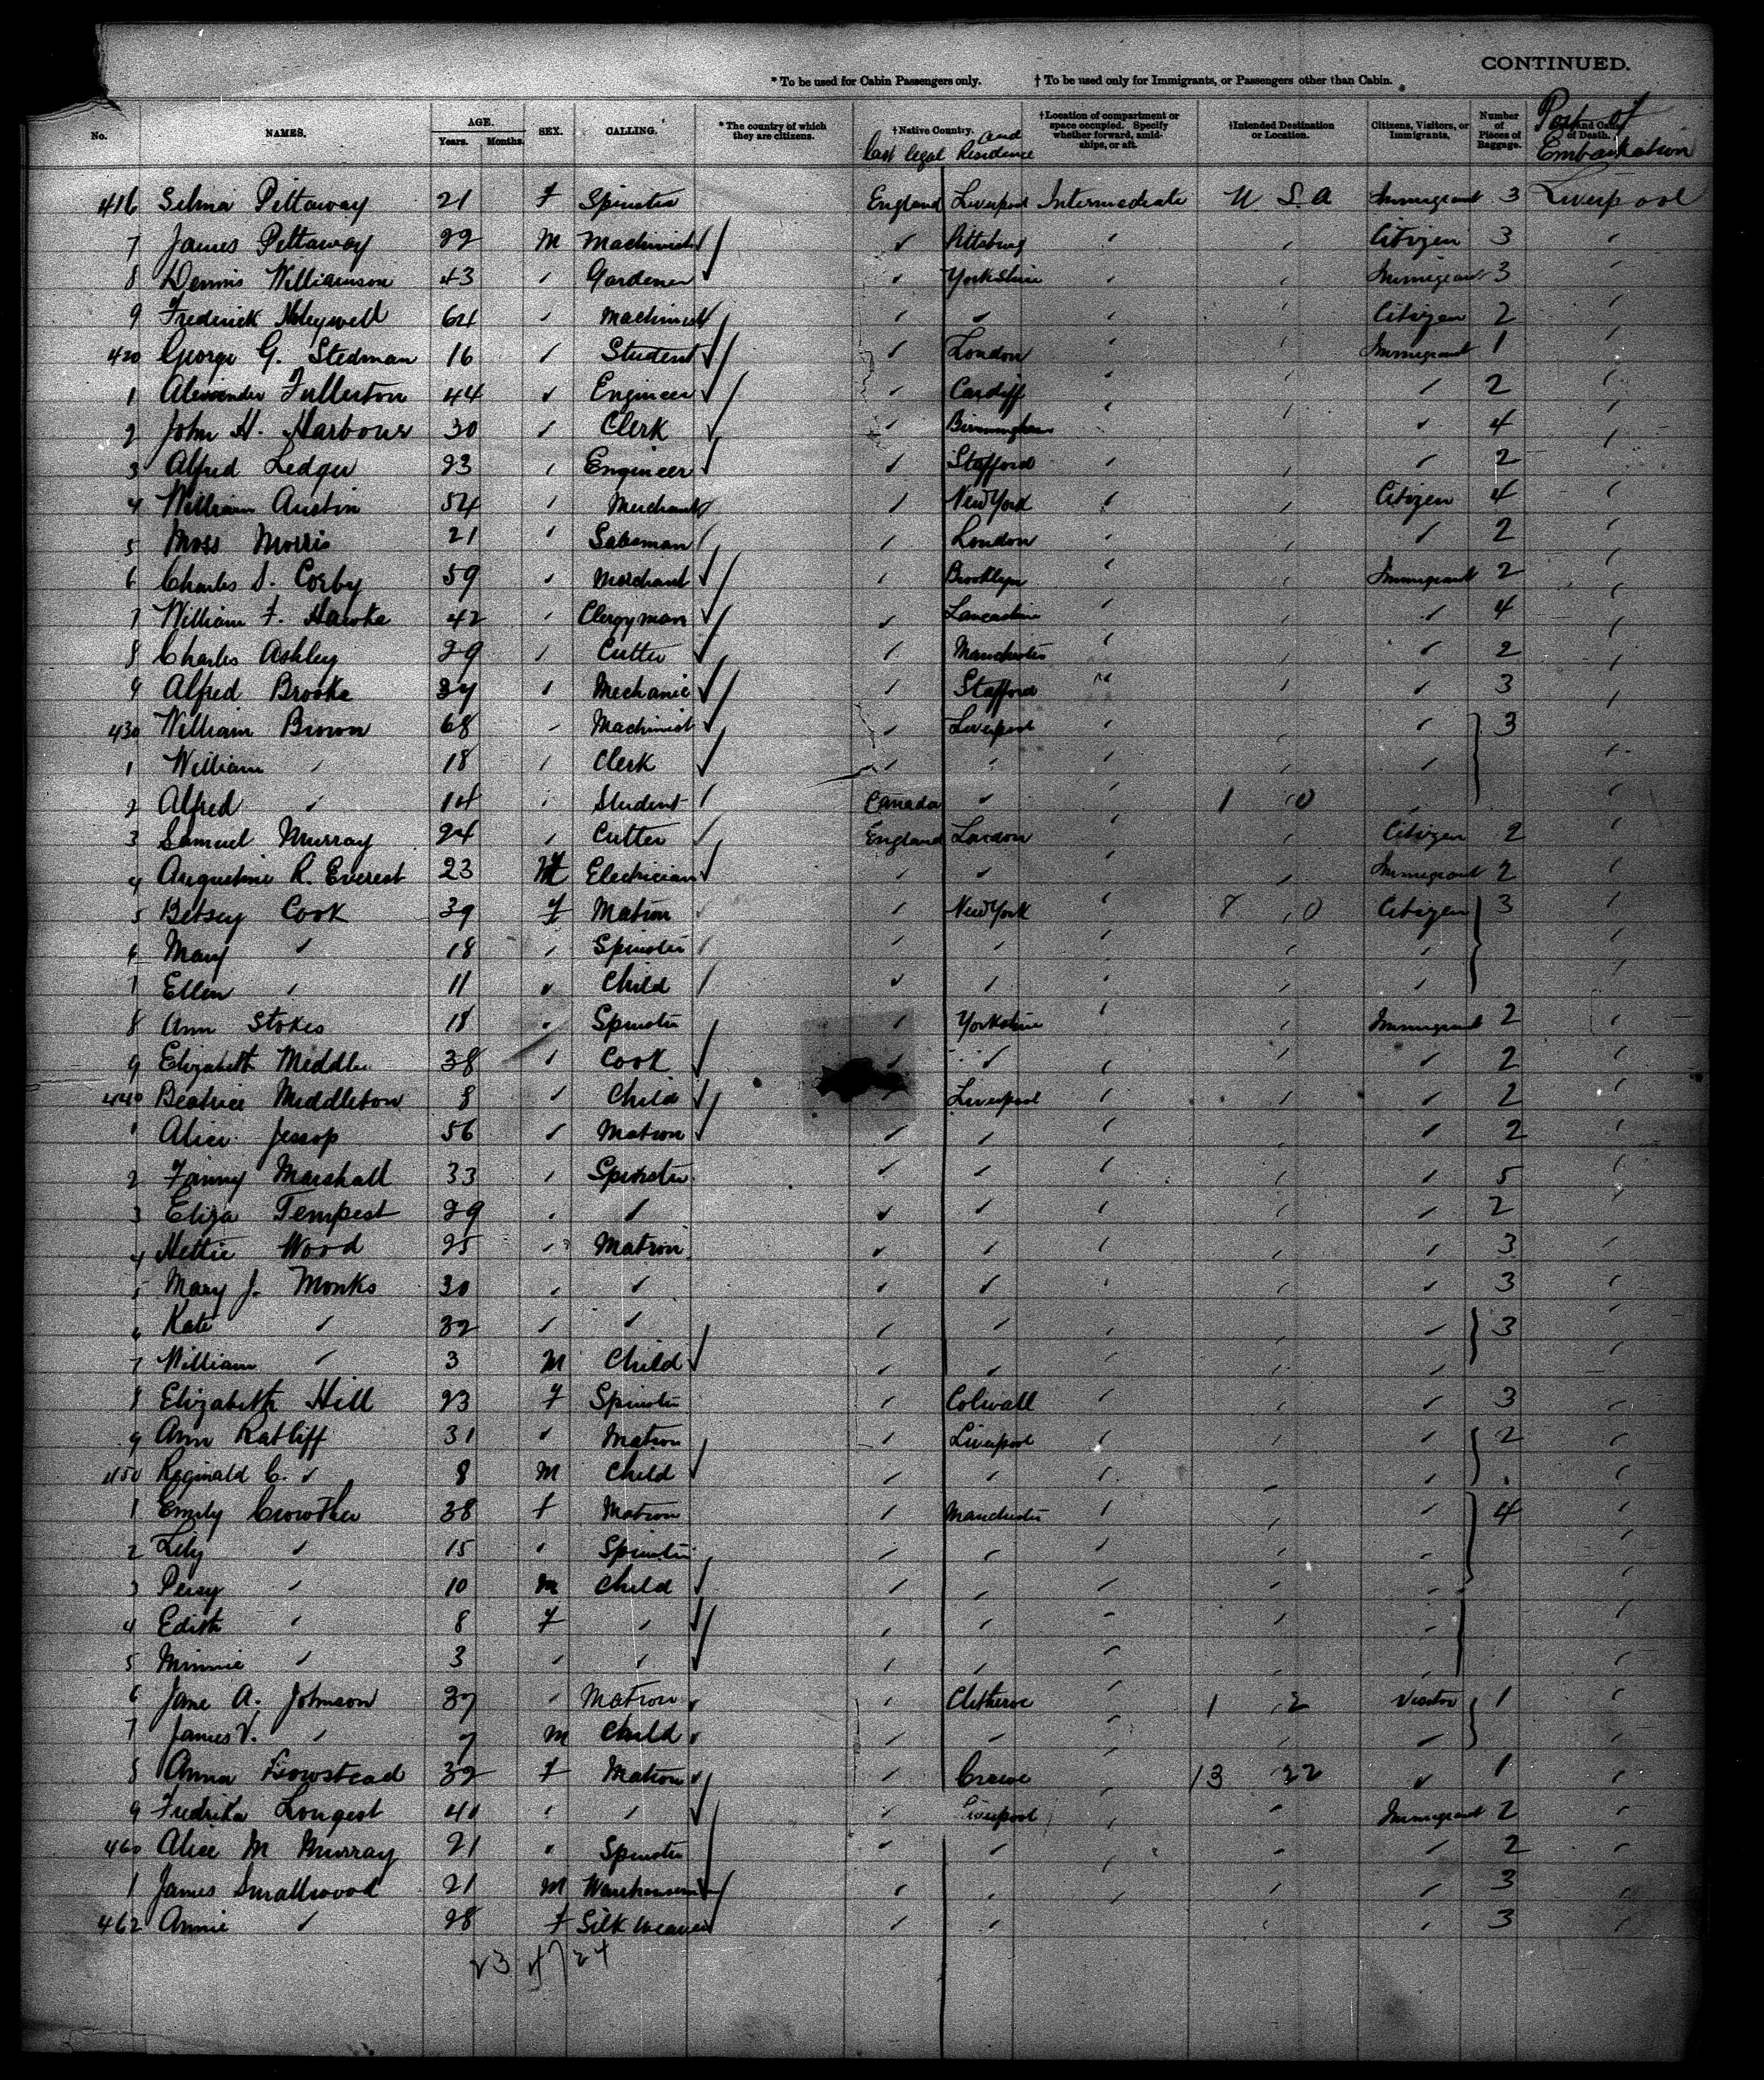 CONTINUED.
* To be used for Cabin Passengers only. † To be used only for Immigrants, or Passengers other than Cabin.
No. NAMES. AGE. Years. Months. SEX. CALLING. *The country of which they are citizens. †Native Country. and last legal Residence †Location of compartment or space occupied. Specify whether forward, amidships, or aft. †Intended Destination or Location. Citizens, Visitors, or Immigrants. Number of Pieces of Baggage. Port of Embarkation
416 Selina Pittaway 21 F Spinster England Liverpool Intermediate U.S.A Immigrant 3 Liverpool
7 James Pittaway 22 M Machinist ✓ Pittsburg Citizen 3
8 Dennis Williamson 43 Gardener Yorkshire Immigrant 3
9 Frederick 64 Machinist Citizen 2
420 George G. Stedman 16 Student London Immigrant 1
1 Alexander Fullerton 44 Engineer Cardiff 2
2 John H. Harbour 30 Clerk Birmingham 4
3 Alfred Ledger 23 Engineer Stafford 2
4 William Austin 54 Merchant New York Citizen 4
5 Moss Morris 21 Salesman London 2
6 Charles S. Corby 59 Merchant Brooklyn Immigrant 2
7 William F. Hawke 42 Clergyman Lancashire 4
8 Charles Ashley 29 Cutter Manchester 2
9 Alfred Brooks Mechanic Stafford 3
430 William Brown 68 Machinist Liverpool 3
1 William 18 Clerk
2 Alfred 14 Student Canada 1 0
3 Samuel Murray 24 Cutter England London Citizen 2
4 Augustine R. Everest 23 Electrician Immigrant 2
5 Betsey Cook 39 F Matron New York 8 0 Citizen 3
6 Mary 18 Spinster
7 Ellen 11 Child
8 Ann Stokes 18 Spinster Yorkshire Immigrant 2
9 Elizabeth Middle 38 Cook 2
440 Beatrice Middleton 8 Child Liverpool 2
1 Alice Jessop 56 Matron 2
2 Fanny Marshall 33 Spinster 5
3 Eliza Tempest 29 2
4 Hettie Wood 25 Matron 3
5 Mary J. Monks 30 3
6 Kate 32 3
7 William 3 M Child
8 Elizabeth Hill 23 F Spinster Colwall 3
9 Ann Ratliff 31 Matron Liverpool 2
450 Reginald C. 8 M Child
1 Emily Crowther 38 F Matron Manchester 4
2 Lily 15 Spinster
3 Percy 10 M Child
4 Edith 8 F
5 Minnie 3
6 Jane A. Johnson 37 Matron Clitheroe 1 2 Visitor 1
7 James V. 7 M Child
8 Anna 32 F Matron Crewe 13 22 1
9 Fredrika Longest 40 Liverpool Immigrant 2
460 Alice M Murray 21 Spinster 2
1 James Smallwood 21 M Warehouseman 3
462 Annie 28 F Silk Weaver 3